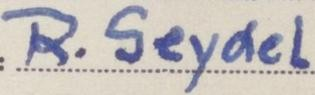 : R. Seydel